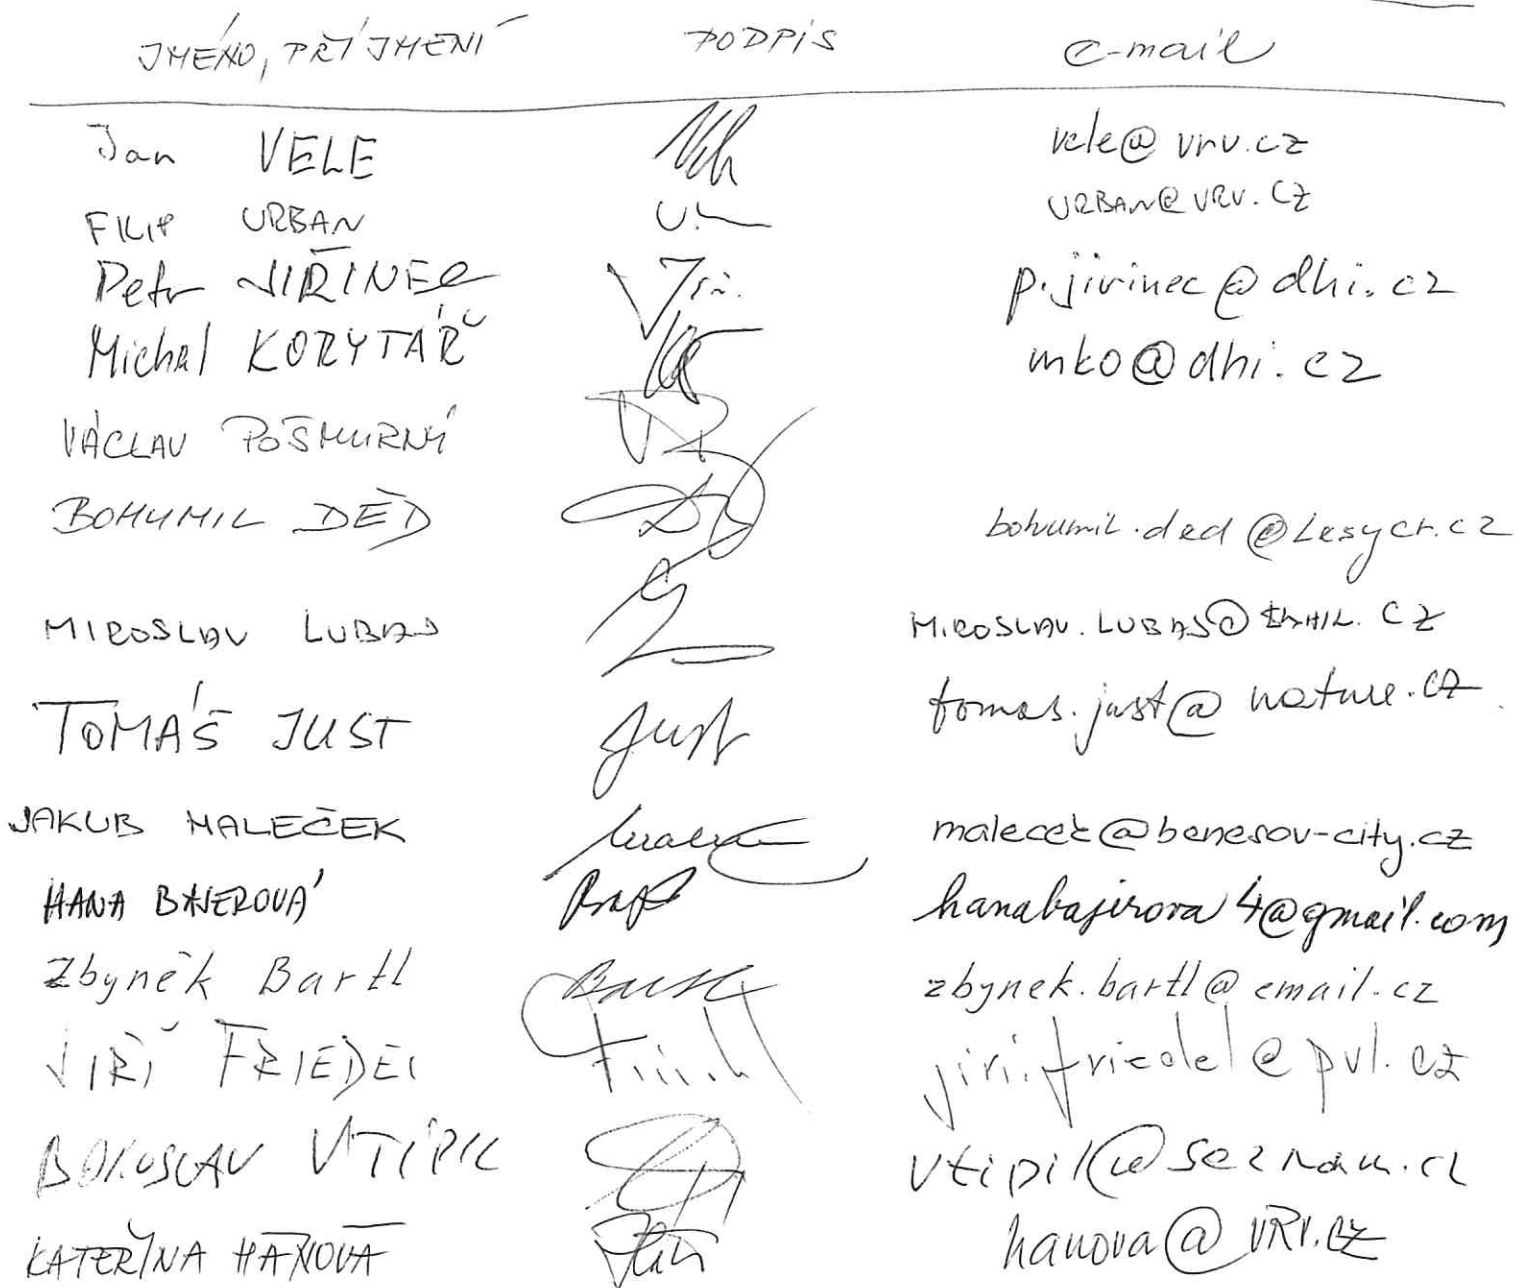 JMÉNO, PŘÍJMENÍ PODPIS e-mail
Jan VELE vele@vrv.cz
FILIP URBAN URBAN@VRV.CZ
Petr JIŘINEC p.jirinec@dhi.cz
Michal KORYTÁŘ mko@dhi.cz
VÁCLAV POŠMURNÝ
BOHUMIL DĚD bohumil.ded@Lesycr.cz
MIROSLAV LUBAS MIROSLAV.LUBAS@ CZ
TOMÁŠ JUST Just tomas.just@nature.cz
JAKUB MALEČEK malecek@benesov-city.cz
HANA BAJEROVÁ hanabajerova4@gmail.com
Zbyněk Bartl zbynek.bartl@email.cz
JIŘÍ FRIEDEL jiri.friedel@pvl.cz
BOHUSLAV VTÍPIL vtipil@seznam.cz
KATEŘINA HÁNOVÁ hanova@VRV.CZ